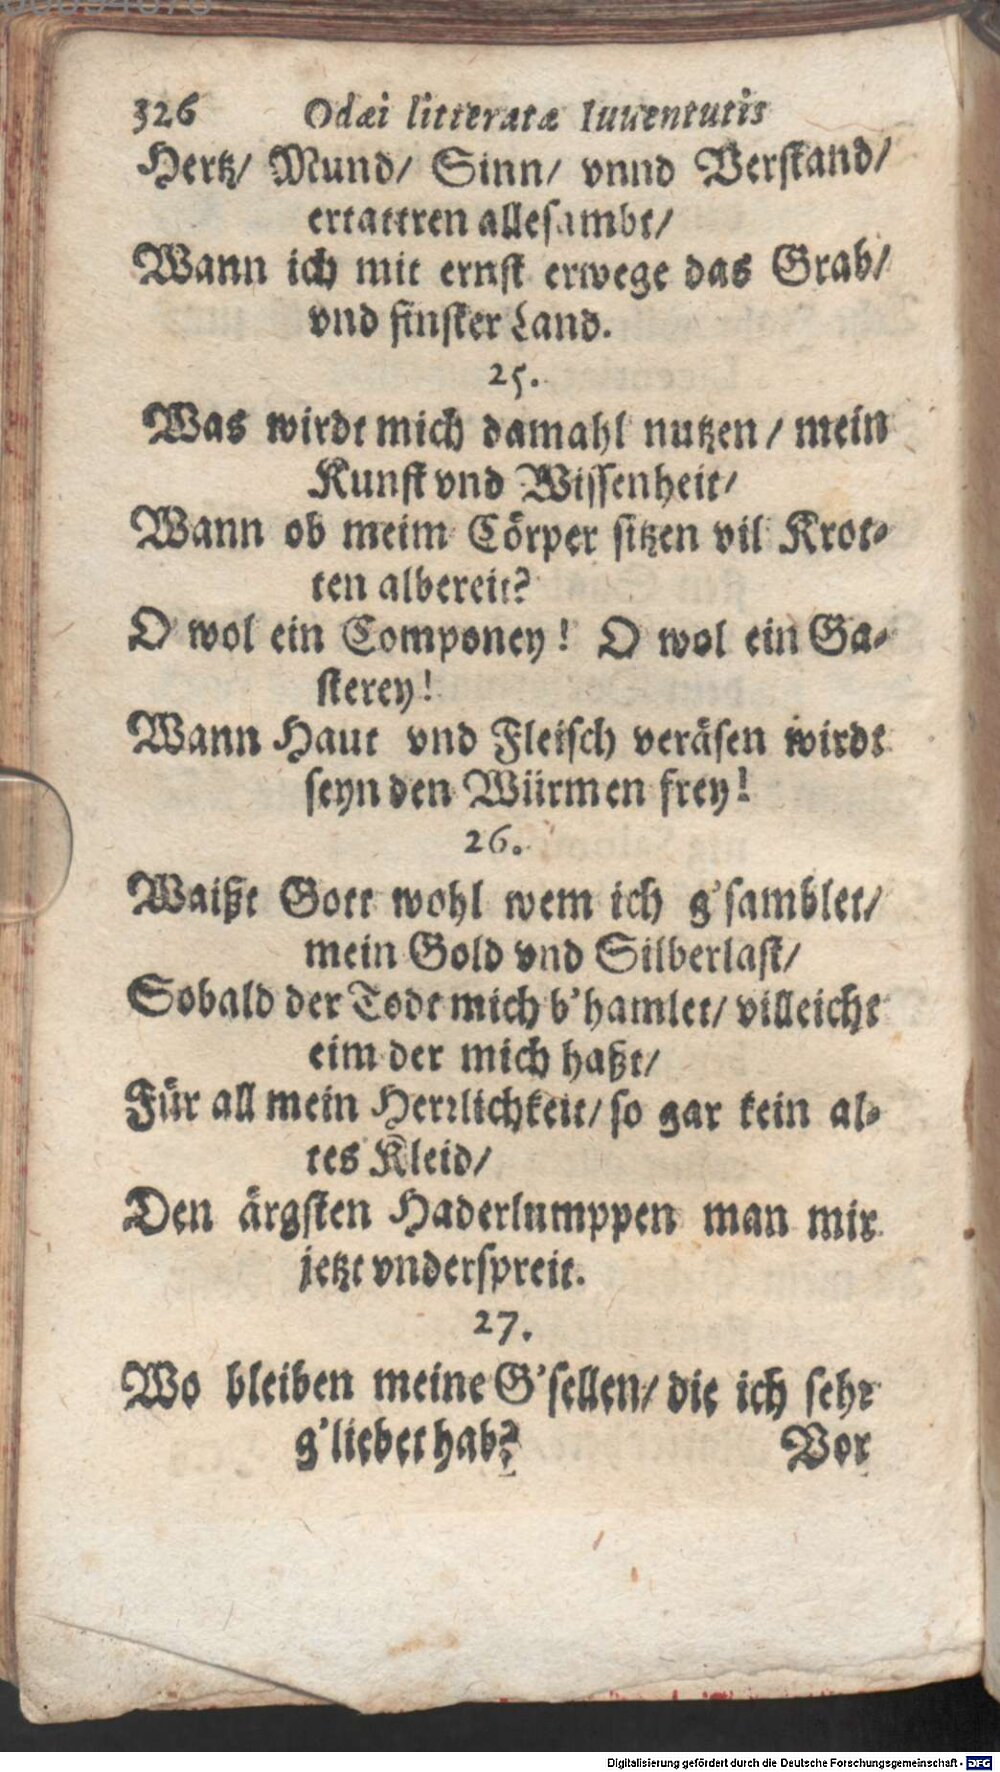 326 Odæi litteratæ Iuuentutis
Hertz/ Mund/ Sinn/ vnnd Verstand/
ertattren allesambt/
Wann ich mit ernst erwege das Grab/
vnd finster Land.
25.
Was wirdt mich damahl nutzen/ mein
Kunst vnd Wissenheit/
Wann ob meim Cörper sitzen vil Krot-
ten albereit?
O wol ein Componey! O wol ein Ga-
sterey!
Wann Haut vnd Fleisch veräsen wirdt
seyn den Würmen frey!
26.
Waißt Gott wohl wem ich g'samblet/
mein Gold vnd Silberlast/
Sobald der Todt mich b'hamlet/ villeicht
eim der mich haßt/
Für all mein Herrlichkeit/ so gar kein al-
tes Kleid/
Den ärgsten Haderlumppen man mir
jetzt vnderspreit.
27.
Wo bleiben meine G'sellen/ die ich sehr
g'liebet hab?
Vor
Digitalisierung gefördert durch die Deutsche Forschungsgemeinschaft - DFG